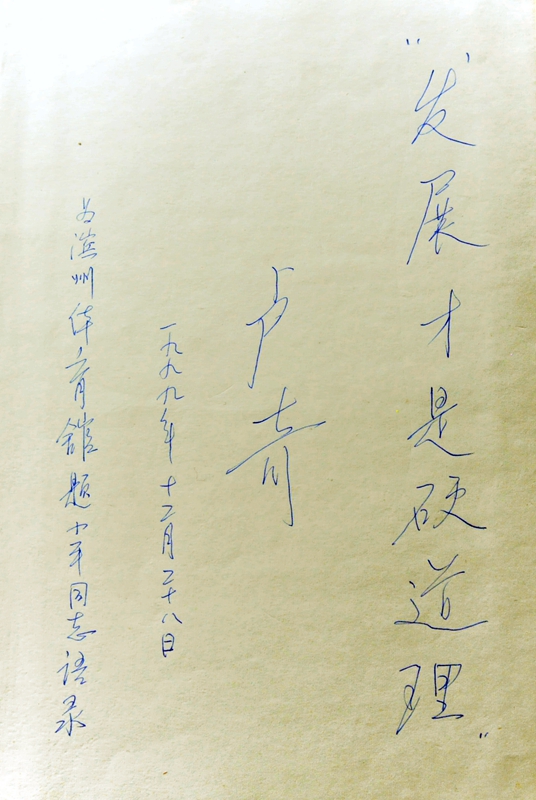 “发展才是硬道理”
卢奇
一九九九年十二月二十八日
为滨州体育馆题小平同志语录